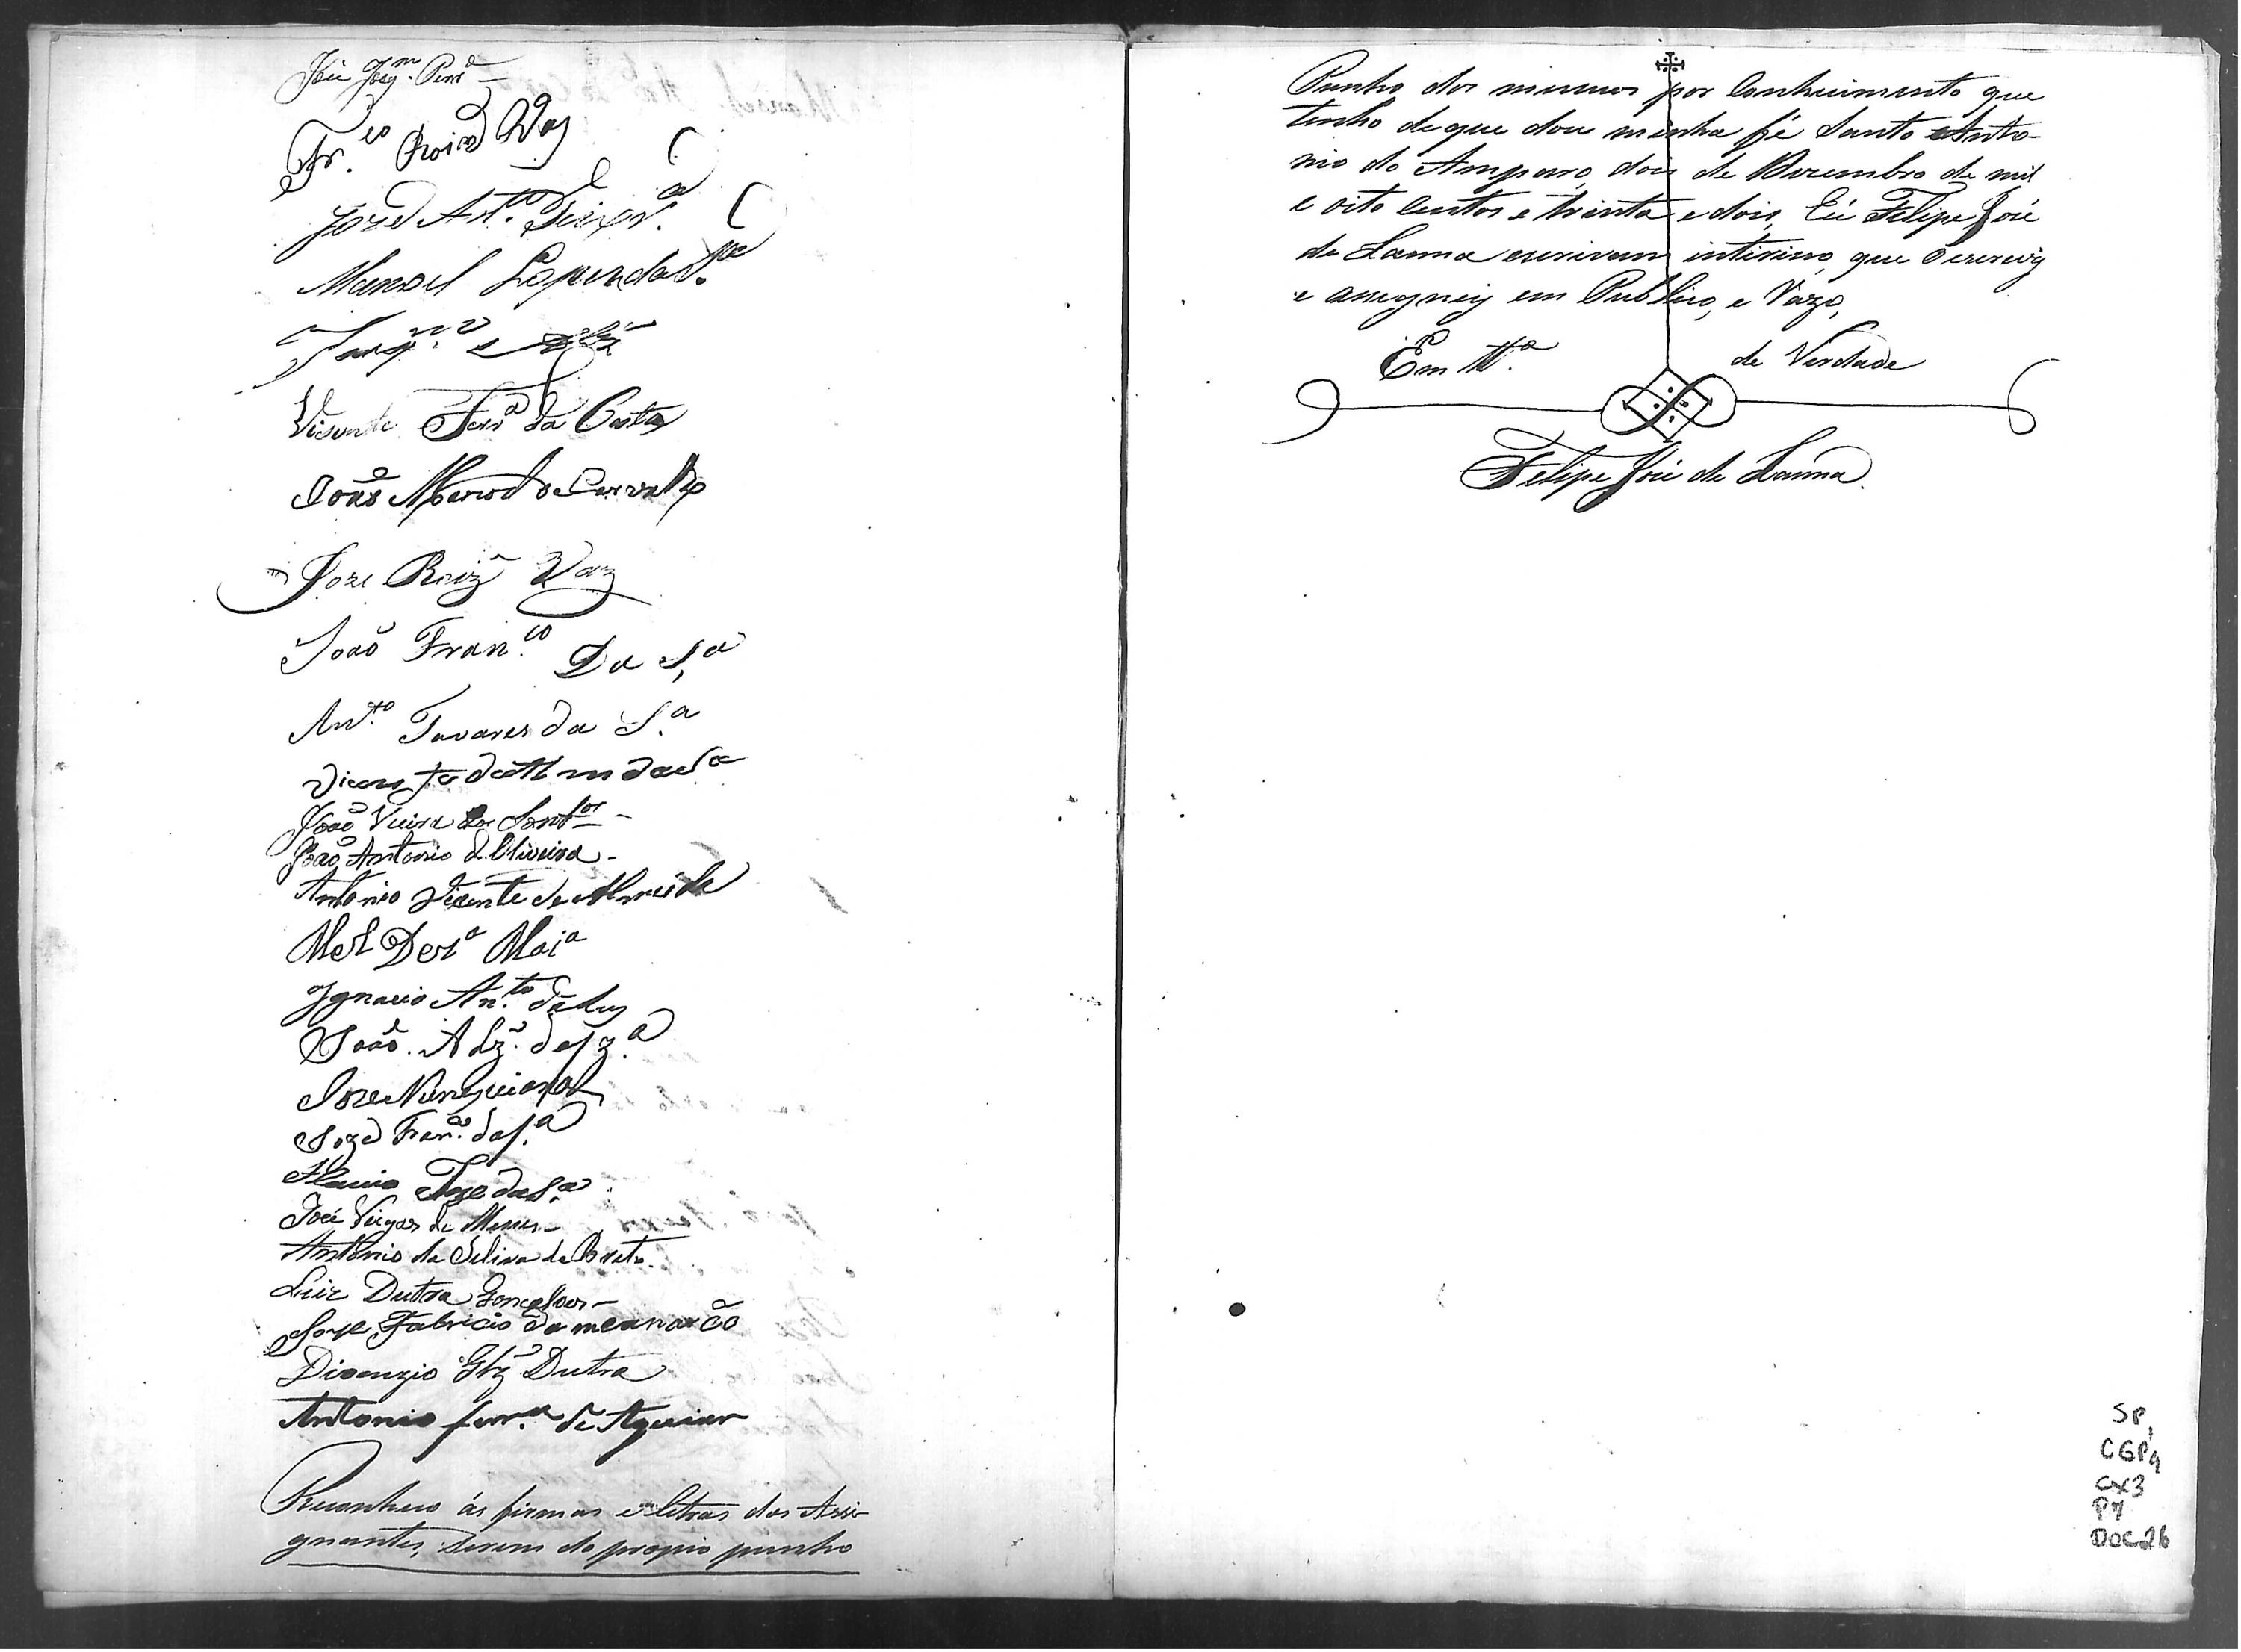 José Joaq.m Per.a
Fr.co Roiz Vaz
Joze Ant.o Teix.ra
Manoel Lopes da S.a
Vicente Ferr.a da Costa
João de Carvalho
Joze Roiz Vaz
João Fran.co Da S.a
Ant.o Tavares da S.a
João Vieira dos Santos
João Antonio d'Oliveira
Antonio Vicente de Almeida
Mel Per.a Maia
Ignacio An.to da Luz
João Alz. da S.a
Joze
Joze Fran.co da S.a
Flavio Joze da S.a
José Viegas de Menes
Antonio da Silva de Brito
Luiz Dutra Gonçalves
Joze Fabricio da
Dionizio Glz Dutra
Antonio ferr.a de Aguiar
Reconheco ás firmas e letras dos Assi-
gnantes, serem do proprio punho
Punho dos mesmos por Conhecimento que
tenho de que dou minha fé Santo Anto-
nio do Amparo, dois de Dezembro de mil
e oito centos e trinta e dois, Eu Felipe José
de Lanna escrivam interino, que o escrevy
e assigney em Publico, e Razo,
Em tt.o de Verdade
Felipe José de Lanna
SP,
CGP,
CX3
P7
DOC26